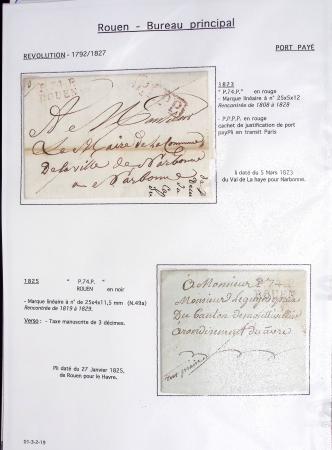 Rouen - Bureau principal
REVOLUTION - 1792/1827
PORT PAYÉ
P.74.P.
ROUEN
P.P.P.P.
A Monsieur
Le Maire de la Commune
De la ville de Narbonne
a Narbonne
1823
" P.74.P " en rouge
- Marque linéaire à n° de 25x5x12
Rencontrée de 1808 à 1828
- P.P.P.P. en rouge
cachet de justification de port
payéPli en transit Paris
li daté du 5 Mars 1823
du Val de La haye pour Narbonne.
1825 " P.74.P. "
ROUEN en noir
- Marque linéaire à n° de 25x4x11,5 mm (N.49a)
Rencontrée de 1819 à 1829.
Verso : - Taxe manuscrite de 3 décimes.
Pli daté du 27 Janvier 1825,
de Rouen pour le Havre.
A Monsieur
Monsieur
Du Canton de
arondinement du
01-3-2-19